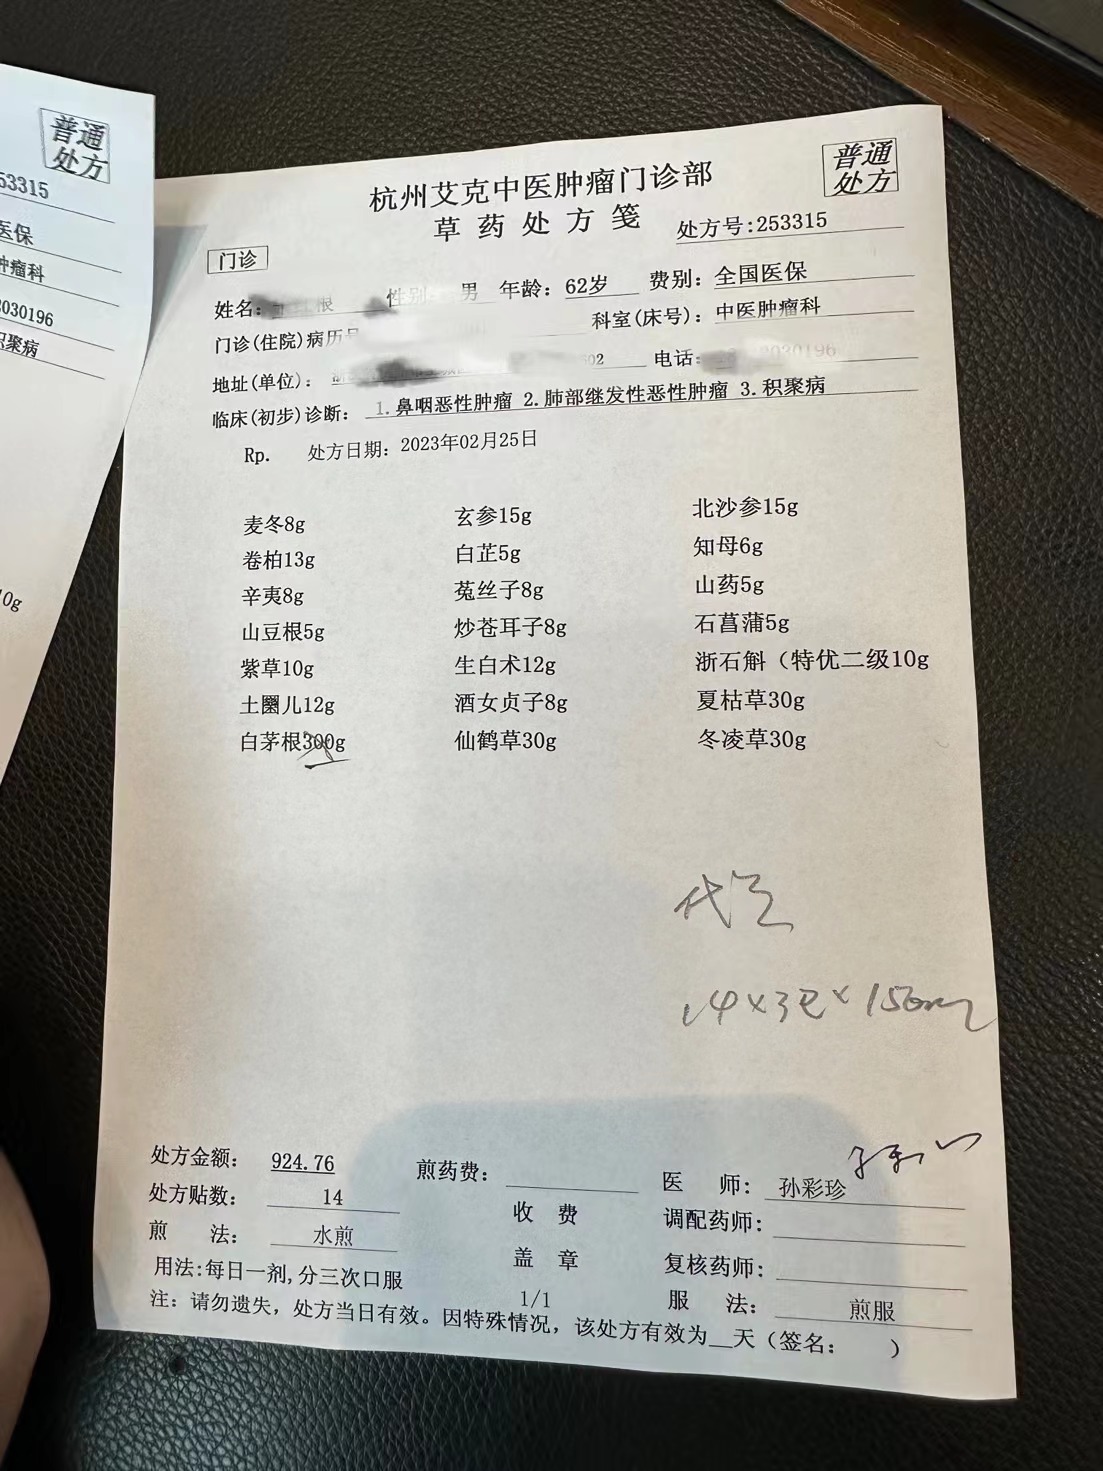 普通
处方
53315
医保
肿瘤科
3030196
积聚病
10g
普通
处方
杭州艾克中医肿瘤门诊部
草药处方笺
处方号:253315
门诊
姓名: 根 性别: 男 年龄: 62岁 费别: 全国医保
门诊(住院)病历号 科室(床号): 中医肿瘤科
地址(单位): 602 电话: 3030196
临床(初步)诊断: 1.鼻咽恶性肿瘤 2.肺部继发性恶性肿瘤 3.积聚病
Rp. 处方日期: 2023年02月25日
麦冬8g 玄参15g 北沙参15g
卷柏13g 白芷5g 知母6g
辛夷8g 菟丝子8g 山药5g
山豆根5g 炒苍耳子8g 石菖蒲5g
紫草10g 生白术12g 浙石斛（特优二级10g
土圞儿12g 酒女贞子8g 夏枯草30g
白茅根300g 仙鹤草30g 冬凌草30g
代
14×3包×150ml
处方金额: 924.76 煎药费: 医 师: 孙彩珍
处方贴数: 14 收 费 调配药师:
煎 法: 水煎 盖 章 复核药师:
用法:每日一剂,分三次口服 1/1 服 法: 煎服
注: 请勿遗失, 处方当日有效。因特殊情况, 该处方有效为__天（签名: ）